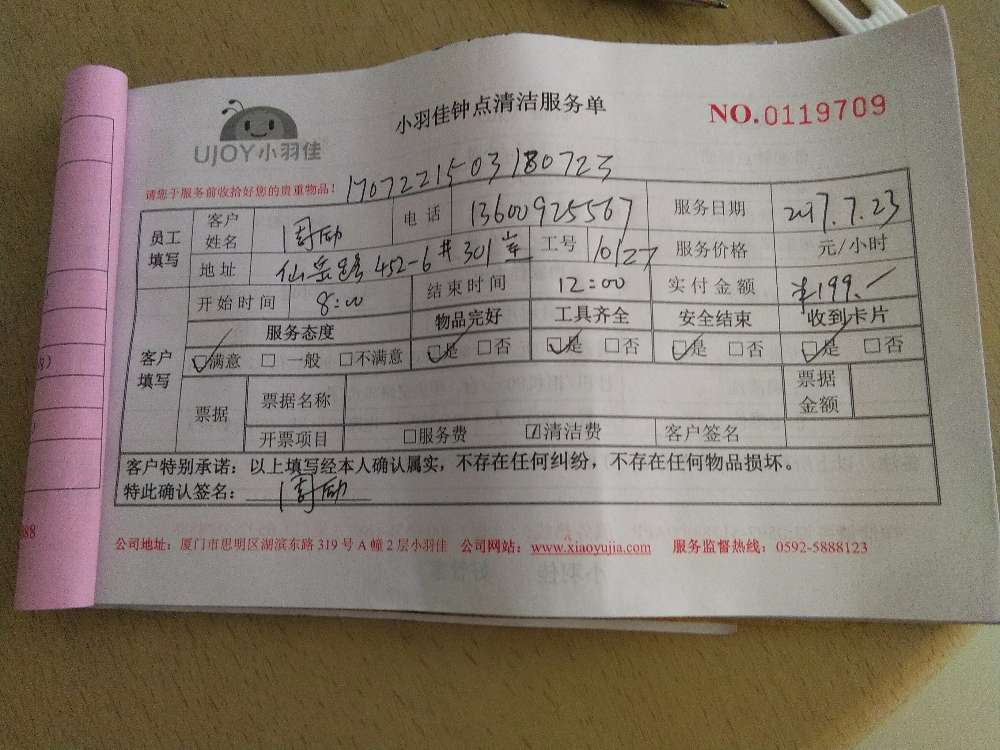 UJOY小羽佳
小羽佳钟点清洁服务单
NO.0119709
请您于服务前收拾好您的贵重物品！
1707221503180723
员工填写 客户姓名 周励 电话 13600925567 服务日期 2017.7.23
地址 仙岳路452-6#301 工号 10127 服务价格 元/小时
开始时间 8:00 结束时间 12:00 实付金额 ¥199.-
客户填写 服务态度 物品完好 工具齐全 安全结束 收到卡片
☑满意 □一般 □不满意 ☑是 □否 ☑是 □否 ☑是 □否 ☑是 □否
票据 票据名称 票据金额
开票项目 □服务费 ☑清洁费 客户签名
客户特别承诺：以上填写经本人确认属实，不存在任何纠纷，不存在任何物品损坏。
特此确认签名：周励
公司地址：厦门市思明区湖滨东路319号A幢2层小羽佳 公司网站：www.xiaoyujia.com 服务监督热线：0592-5888123